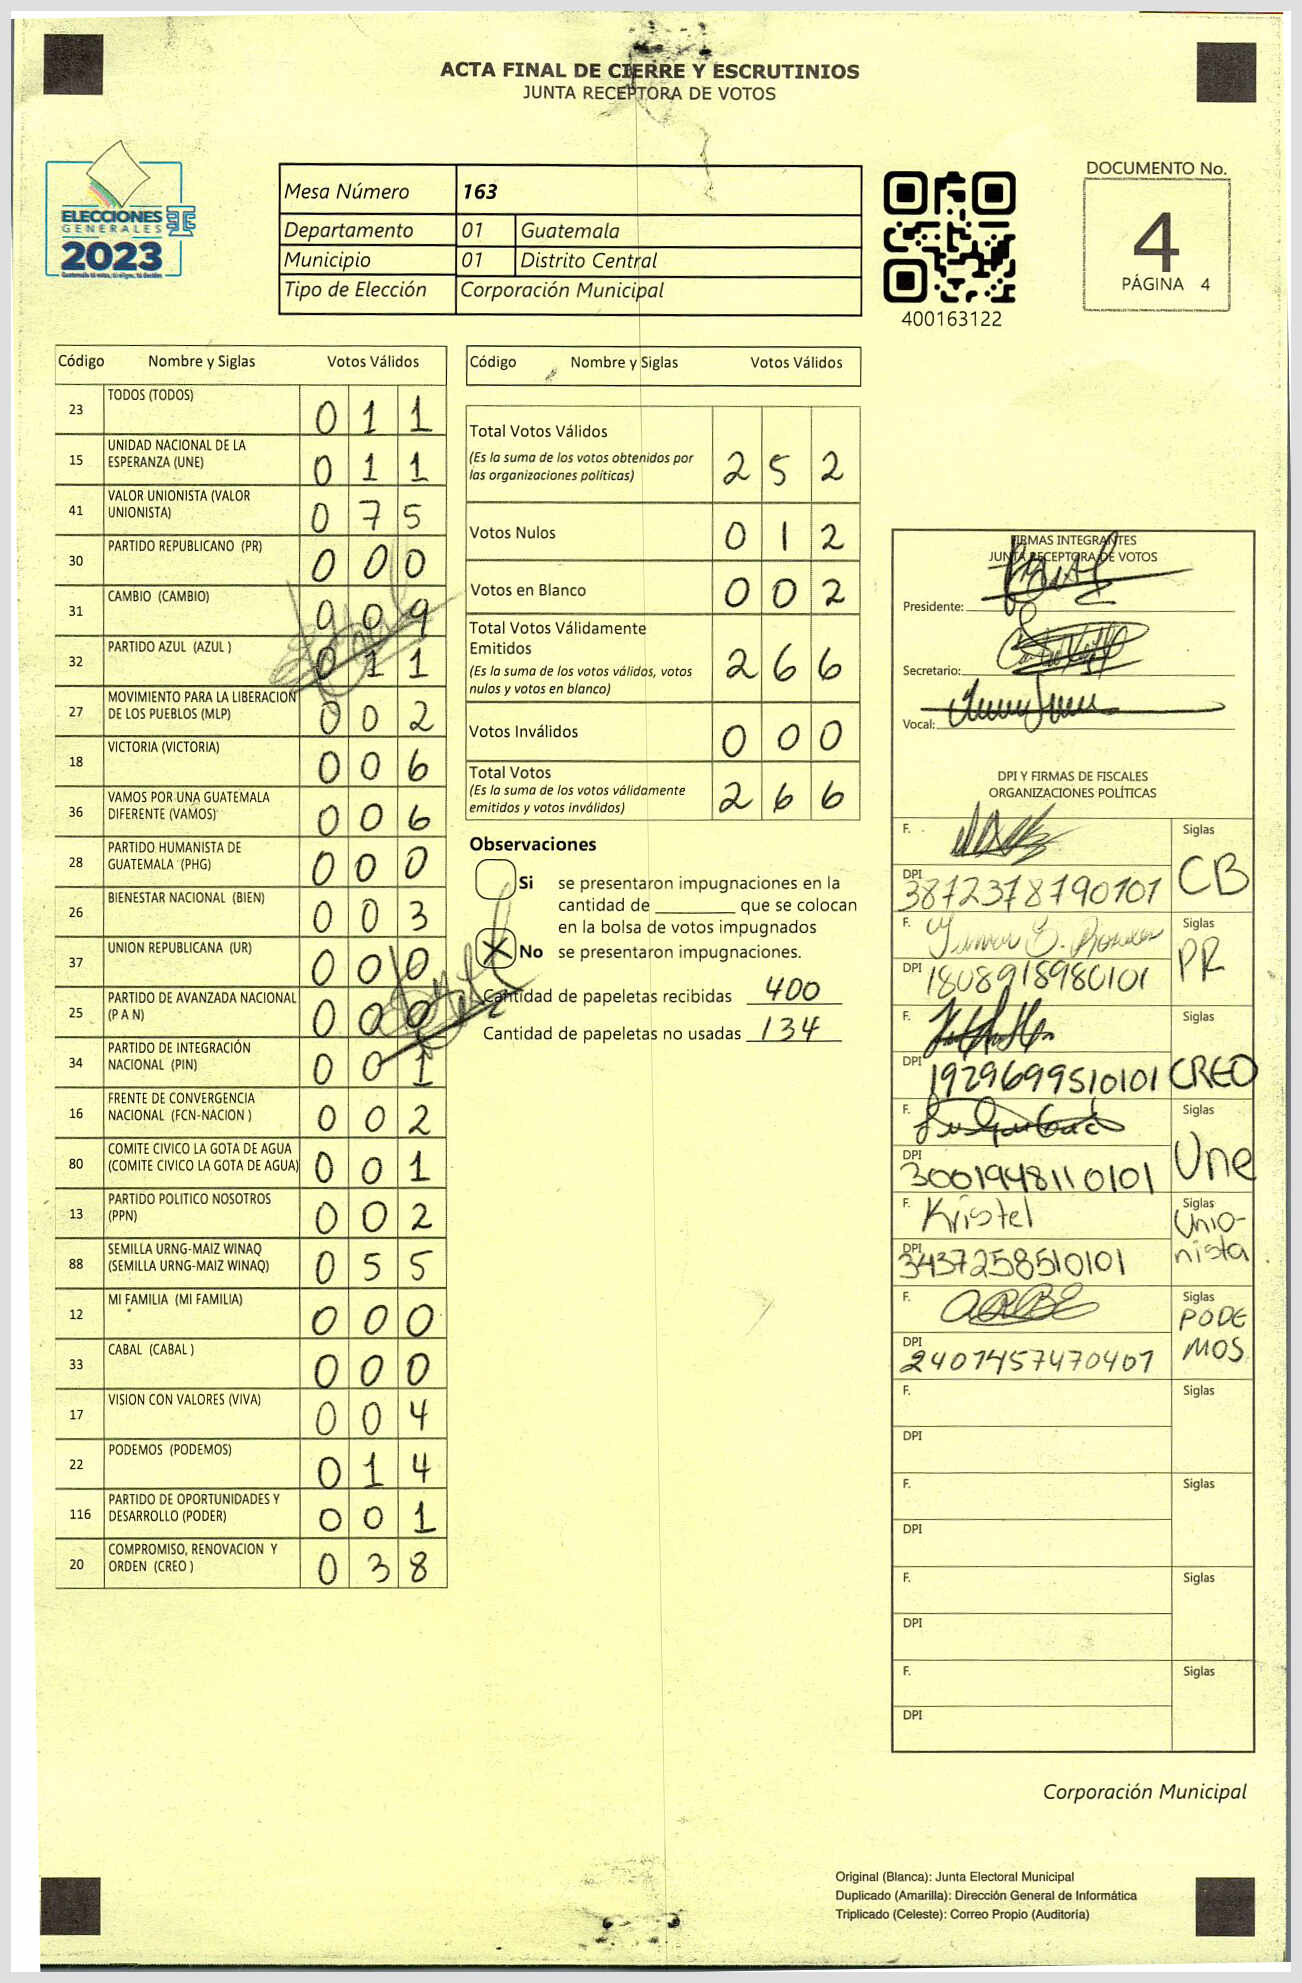 ACTA FINAL DE CIERRE Y ESCRUTINIOS
JUNTA RECEPTORA DE VOTOS
ELECCIONES
GENERALES
2023
Mesa Número 163
Departamento 01 Guatemala
Municipio 01 Distrito Central
Tipo de Elección Corporación Municipal
400163122
DOCUMENTO No.
4
PÁGINA 4
Código Nombre y Siglas Votos Válidos
23 TODOS (TODOS) 0 1 1
15 UNIDAD NACIONAL DE LA
ESPERANZA (UNE) 0 1 1
41 VALOR UNIONISTA (VALOR
UNIONISTA) 0 7 5
30 PARTIDO REPUBLICANO (PR) 0 0 0
31 CAMBIO (CAMBIO) 0 0 9
32 PARTIDO AZUL (AZUL ) 0 1 1
27 MOVIMIENTO PARA LA LIBERACION
DE LOS PUEBLOS (MLP) 0 0 2
18 VICTORIA (VICTORIA) 0 0 6
36 VAMOS POR UNA GUATEMALA
DIFERENTE (VAMOS) 0 0 6
28 PARTIDO HUMANISTA DE
GUATEMALA (PHG) 0 0 0
26 BIENESTAR NACIONAL (BIEN) 0 0 3
37 UNION REPUBLICANA (UR) 0 0 0
25 PARTIDO DE AVANZADA NACIONAL
(P A N) 0 0 0
34 PARTIDO DE INTEGRACIÓN
NACIONAL (PIN) 0 0 1
16 FRENTE DE CONVERGENCIA
NACIONAL (FCN-NACION ) 0 0 2
80 COMITE CIVICO LA GOTA DE AGUA
(COMITE CIVICO LA GOTA DE AGUA) 0 0 1
13 PARTIDO POLITICO NOSOTROS
(PPN) 0 0 2
88 SEMILLA URNG-MAIZ WINAQ
(SEMILLA URNG-MAIZ WINAQ) 0 5 5
12 MI FAMILIA (MI FAMILIA) 0 0 0
33 CABAL (CABAL ) 0 0 0
17 VISION CON VALORES (VIVA) 0 0 4
22 PODEMOS (PODEMOS) 0 1 4
116 PARTIDO DE OPORTUNIDADES Y
DESARROLLO (PODER) 0 0 1
20 COMPROMISO, RENOVACION Y
ORDEN (CREO ) 0 3 8
Código Nombre y Siglas Votos Válidos
Total Votos Válidos
(Es la suma de los votos obtenidos por
las organizaciones políticas) 2 5 2
Votos Nulos 0 1 2
Votos en Blanco 0 0 2
Total Votos Válidamente
Emitidos
(Es la suma de los votos válidos, votos
nulos y votos en blanco) 2 6 6
Votos Inválidos 0 0 0
Total Votos
(Es la suma de los votos válidamente
emitidos y votos inválidos) 2 6 6
Observaciones
Si se presentaron impugnaciones en la
cantidad de ________ que se colocan
en la bolsa de votos impugnados
X No se presentaron impugnaciones.
Cantidad de papeletas recibidas 400
Cantidad de papeletas no usadas 134
FIRMAS INTEGRANTES
JUNTA RECEPTORA DE VOTOS
Presidente:
Secretario:
Vocal:
DPI Y FIRMAS DE FISCALES
ORGANIZACIONES POLÍTICAS
F. Siglas
CB
DPI 3872378790101
F. Siglas
PR
DPI 1808918980101
F. Siglas
DPI 1929699510101 CREO
F. Siglas
Une
DPI 3001948110101
F. Kristel Siglas
Unio-
nista
DPI 3437258510101
F. Siglas
PODE
MOS
DPI 2407457470401
F. Siglas
DPI
F. Siglas
DPI
F. Siglas
DPI
F. Siglas
DPI
Corporación Municipal
Original (Blanca): Junta Electoral Municipal
Duplicado (Amarilla): Dirección General de Informática
Triplicado (Celeste): Correo Propio (Auditoría)